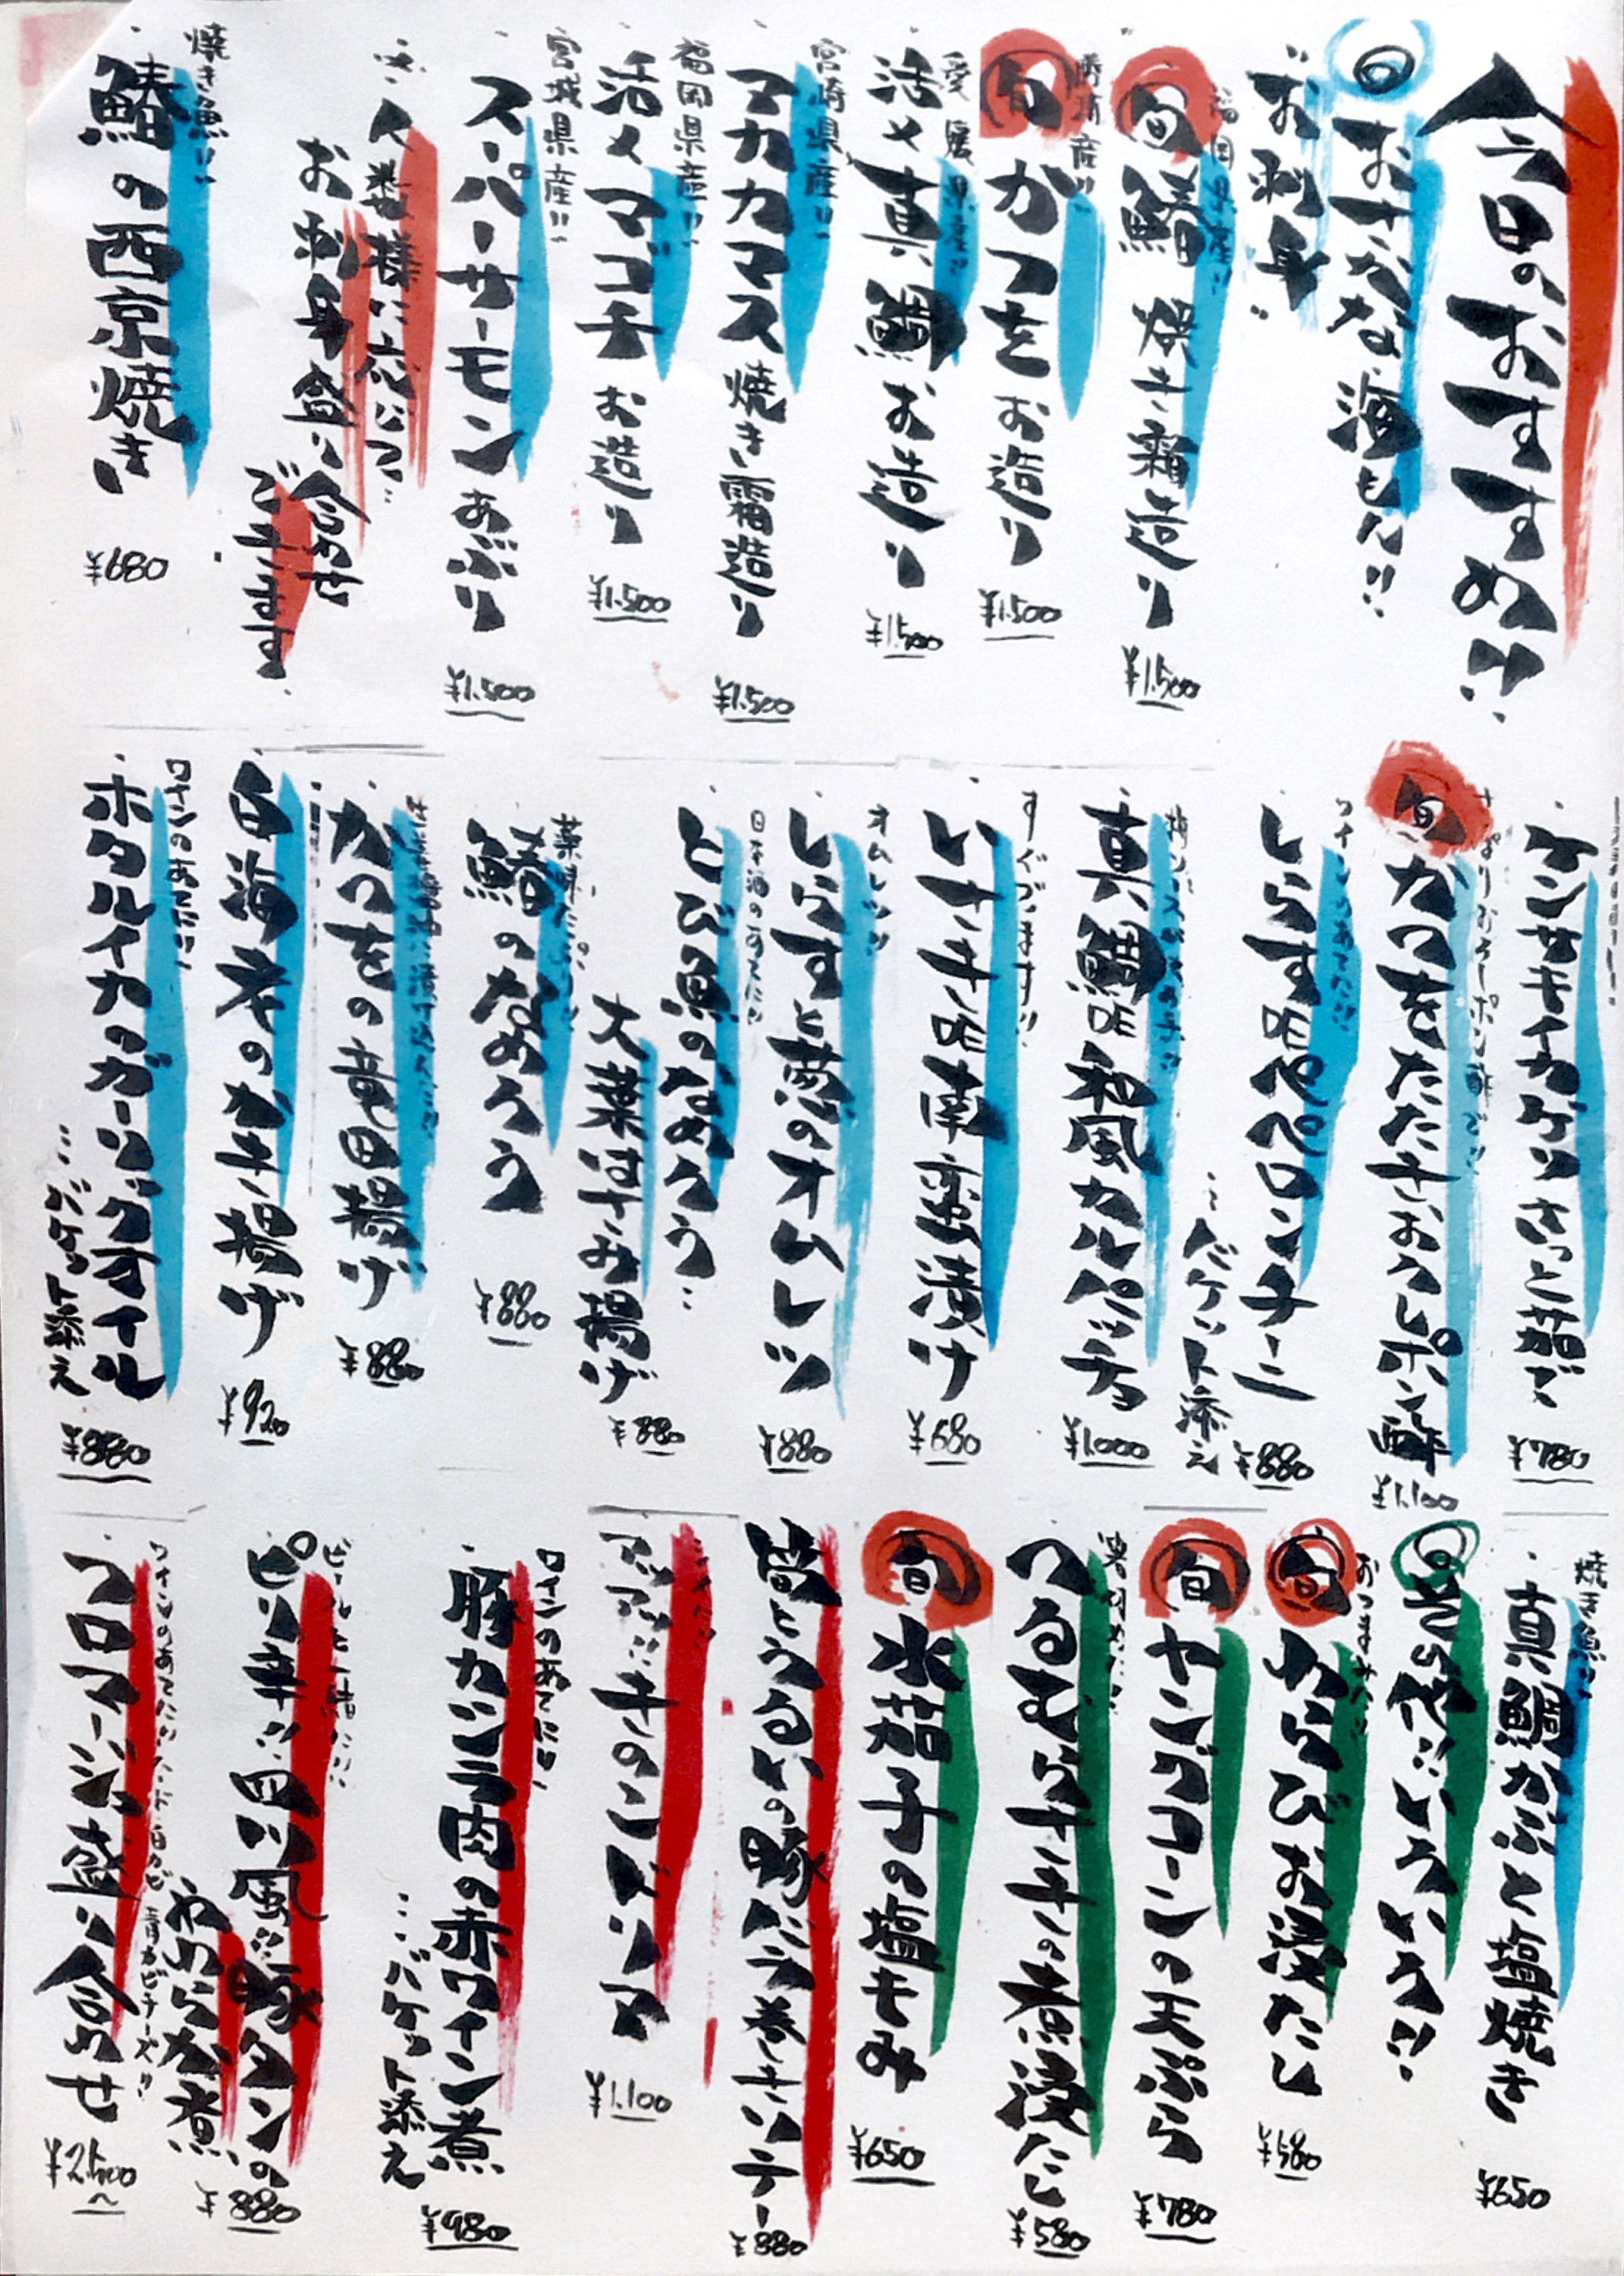 今日のおすすめ!!
おさかな 海もん!!
お刺身
福岡県産!!
旬 鰆 焼き霜造り
¥1,500
勝浦産!!
旬 かつを お造り
¥1,500
愛媛県産!!
活〆真鯛 お造り
¥1,500
宮崎県産!!
マカカマス 焼き霜造り
¥1,500
福岡県産!!
活〆マゴチ お造り
¥1,500
宮城県産!!
スーパーサーモン あぶり
¥1,500
人数様に応じて…
お刺身盛り合わせ
ございます
焼き魚!!
鰆の西京焼き
¥680
ケンサキイカゲソ さっと茹で
¥780
さっぱりおろしポン酢で!!
旬 かつをたたき おろしポン酢
¥1,100
ワインのあてに!!
しらす DE ペペロンチーニ
…バケット添え
¥880
真鯛DE 和風カルパッチョ
¥1,000
すぐでますす!!
いさき DE 南蛮漬け
¥680
オムレツ!!
しらすと葱のオムレツ
¥880
日本酒のあてに!!
とび魚のなめろう…
大葉はさみ揚げ
¥880
薬味たっぷり!!
鰆のなめろう
¥880
かつをの竜田揚げ
¥880
白海老のかき揚げ
¥920
ワインのあてに!!
ホタルイカのガーリックオイル
…バケット添え
¥880
焼き魚!!
真鯛かぶと塩焼き
¥650
おつまみに!!
旬 わらびお浸たし
¥580
旬 ヤングコーンの天ぷら
¥780
つるむらさきの煮浸たし
¥580
旬 水茄子の塩もみ
¥650
筍とうるいの豚バラ巻きソテー
¥880
アツアツ!!牛のこどリア
¥1,100
ワインのあてに!!
豚カシラ肉の赤ワイン煮
…バケット添え
¥980
ビールと一緒に!!
ピリ辛!!四川風!!豚タンの
やわらか煮
¥880
ワインのあてに!!ハード 白カビ 青カビチーズ!!
フロマージュ盛り合わせ
¥2,500〜